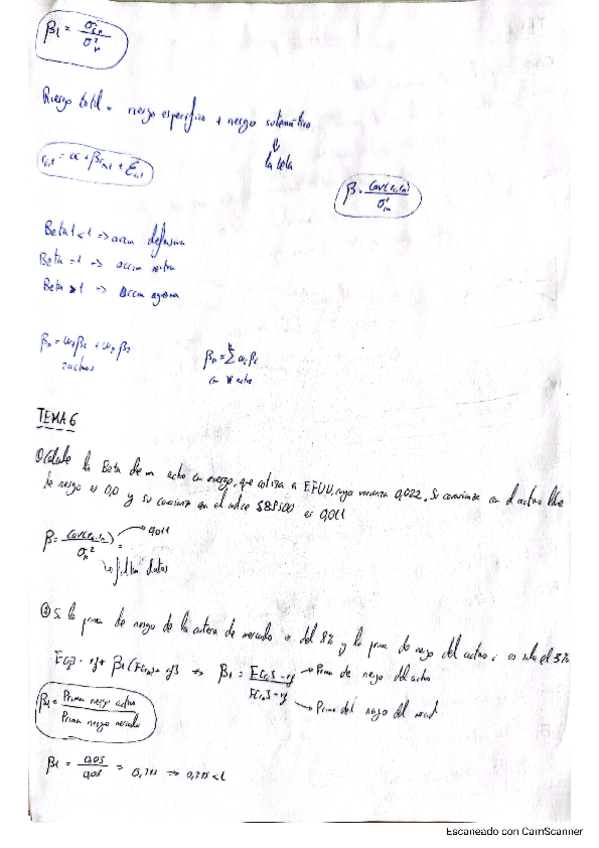 βi = σi,m / σ²m
Riesgo total = riesgo específico + riesgo sistemático
⇓
la beta
ri,t = α + βrm,t + Ei,t
β = Cov(ri,rm) / σ²m
Beta < 1 => accion defensiva
Beta = 1 => accion neutra
Beta > 1 => accion agresiva
βp = ω1β1 + ω2β2
2 activos
βp = Σ ωi βi
con activos
TEMA 6
① Calcule la Beta de un activo con riesgo, que cotiza a EEUU, cuya varianza 0,022. Su covarianza con el activo libre
de riesgo es 0,0 y su covarianza con el indice S&P500 es 0,011
β = Cov(ri,rm) / σm² → 0,011
→ faltan datos
② Si la prima de riesgo de la cartera de mercado es del 8% y la prima de riesgo del activo i es solo el 3%
β1 = E(ri) - rf / E(rm) - rf
→ Prima de riesgo del activo
→ Prima del riesgo del mercad
βi = Prima riesgo activo / Prima riesgo mercado
βi = 0,03 / 0,08 = < 1
Escaneado con CamScanner